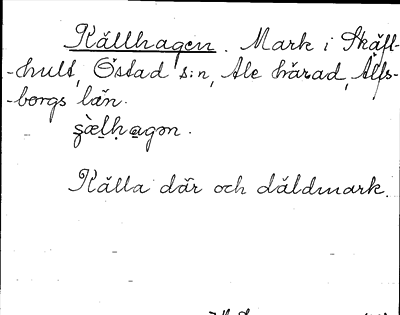 Källhagen. Mark i Skäfl-
-hult, Östad s:n, Ale härad, Älfs-
-borgs län.
Källa där och däldmark.